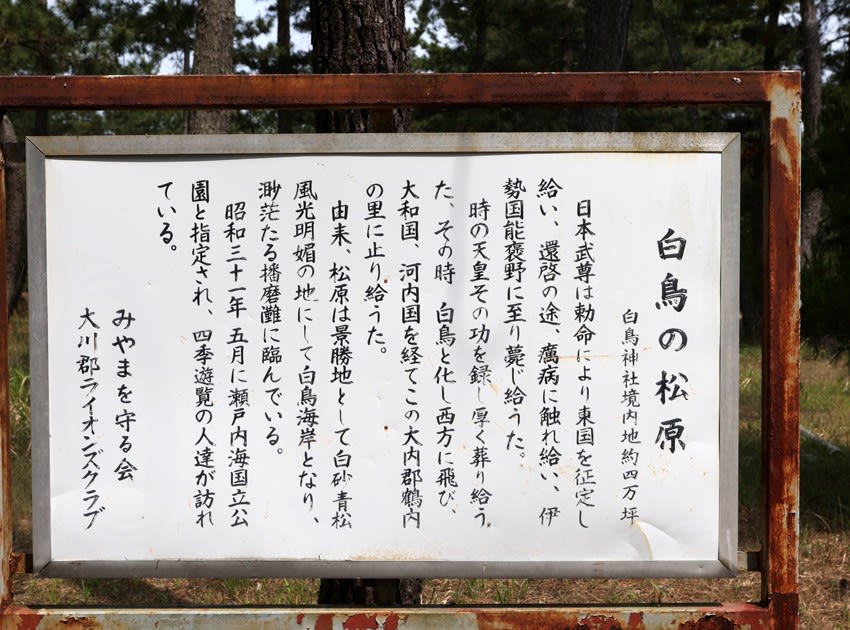 白鳥の松原
白鳥神社境内地約四万坪
日本武尊は勅命により東国を征定し
給い、還啓の途、癘病に触れ給い、伊
勢国能褒野に至り薨じ給うた。
時の天皇その功を録し厚く葬り給う
た、その時　白鳥と化し西方に飛び、
大和国、河内国を経てこの大内郡鶴内
の里に止り給うた。
由来、松原は景勝地として白砂青松
風光明媚の地にして白鳥海岸となり、
渺茫たる播磨灘に臨んでいる。
昭和三十一年 五月に瀬戸内海国立公
園と指定され、四季遊覧の人達が訪れ
ている。
みやまを守る会
大川郡ライオンズクラブ